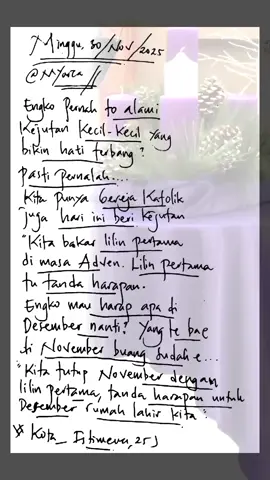 Minggu, 30/Nov/2025
Engko Pernah to alami
Kejutan Kecil-Kecil yang
bikin hati terbang?
pasti pernalah....
Kita Punya Gereja Katolik
juga hari ini beri kejutan
"Kita bakar lilin pertama
di masa Adven. Lilin pertama
tu tanda harapan.
Engko mau harap apa di
Desember nanti? Yang te bae
di November buang sudah e...
"Kita tutup November dengan
lilin pertama, tanda harapan untuk
Desember rumah lahir kita".
Kota_Istimewa, 25